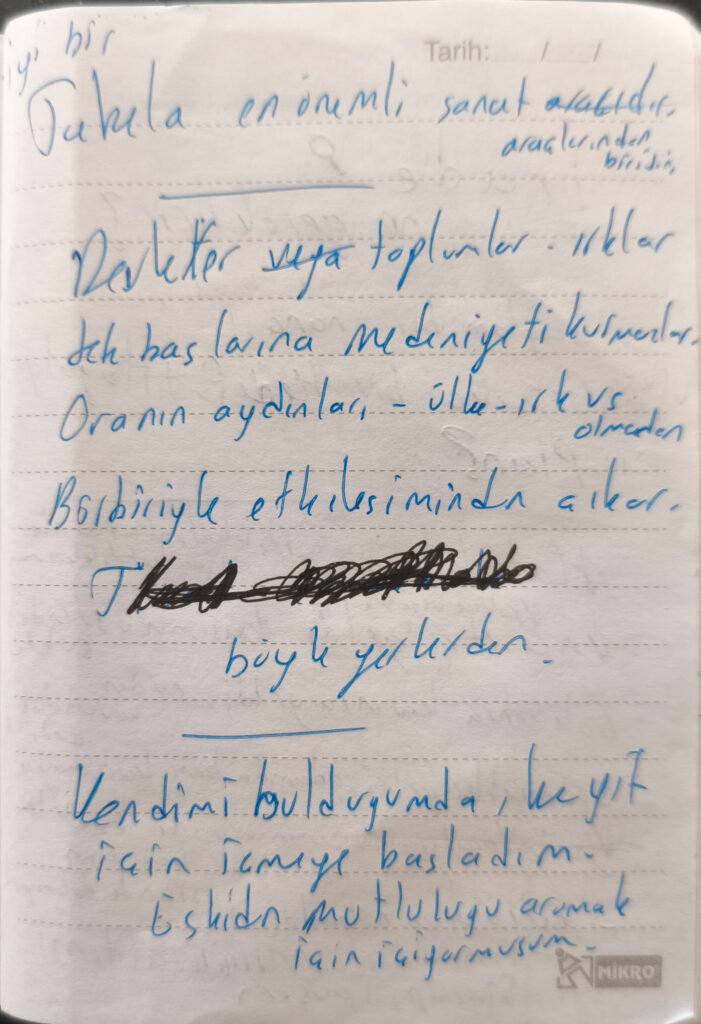 iyi bir
Tarih: / /
Tabela en önemli sanat aracıdır,
araçlarından
biridir,
Devletler veya toplumlar. ırklar
tek başlarına medeniyeti kurmazlar.
Oranın aydınları, - ülke - ırk vs
olmadan
Birbiriyle etkilesiminden çıkar.
T
böyle yerlerden.
Kendimi bulduğumda, keyif
için içmeye başladım.
Eskiden mutluluğu aramak
için içiyormuşum.
MİKRO